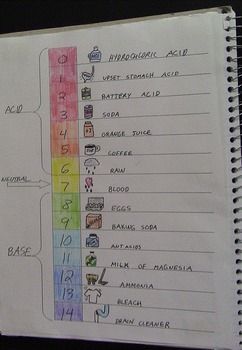 0 HYDROCHLORIC ACID
1 UPSET STOMACH ACID
2 BATTERY ACID
3 SODA
ACID
4 ORANGE JUICE
5 COFFEE
6 RAIN
NEUTRAL
7 BLOOD
8 EGGS
9 BAKING SODA
BASE
10 ANTACIDS
11 MILK OF MAGNESIA
12 AMMONIA
13 BLEACH
14 DRAIN CLEANER